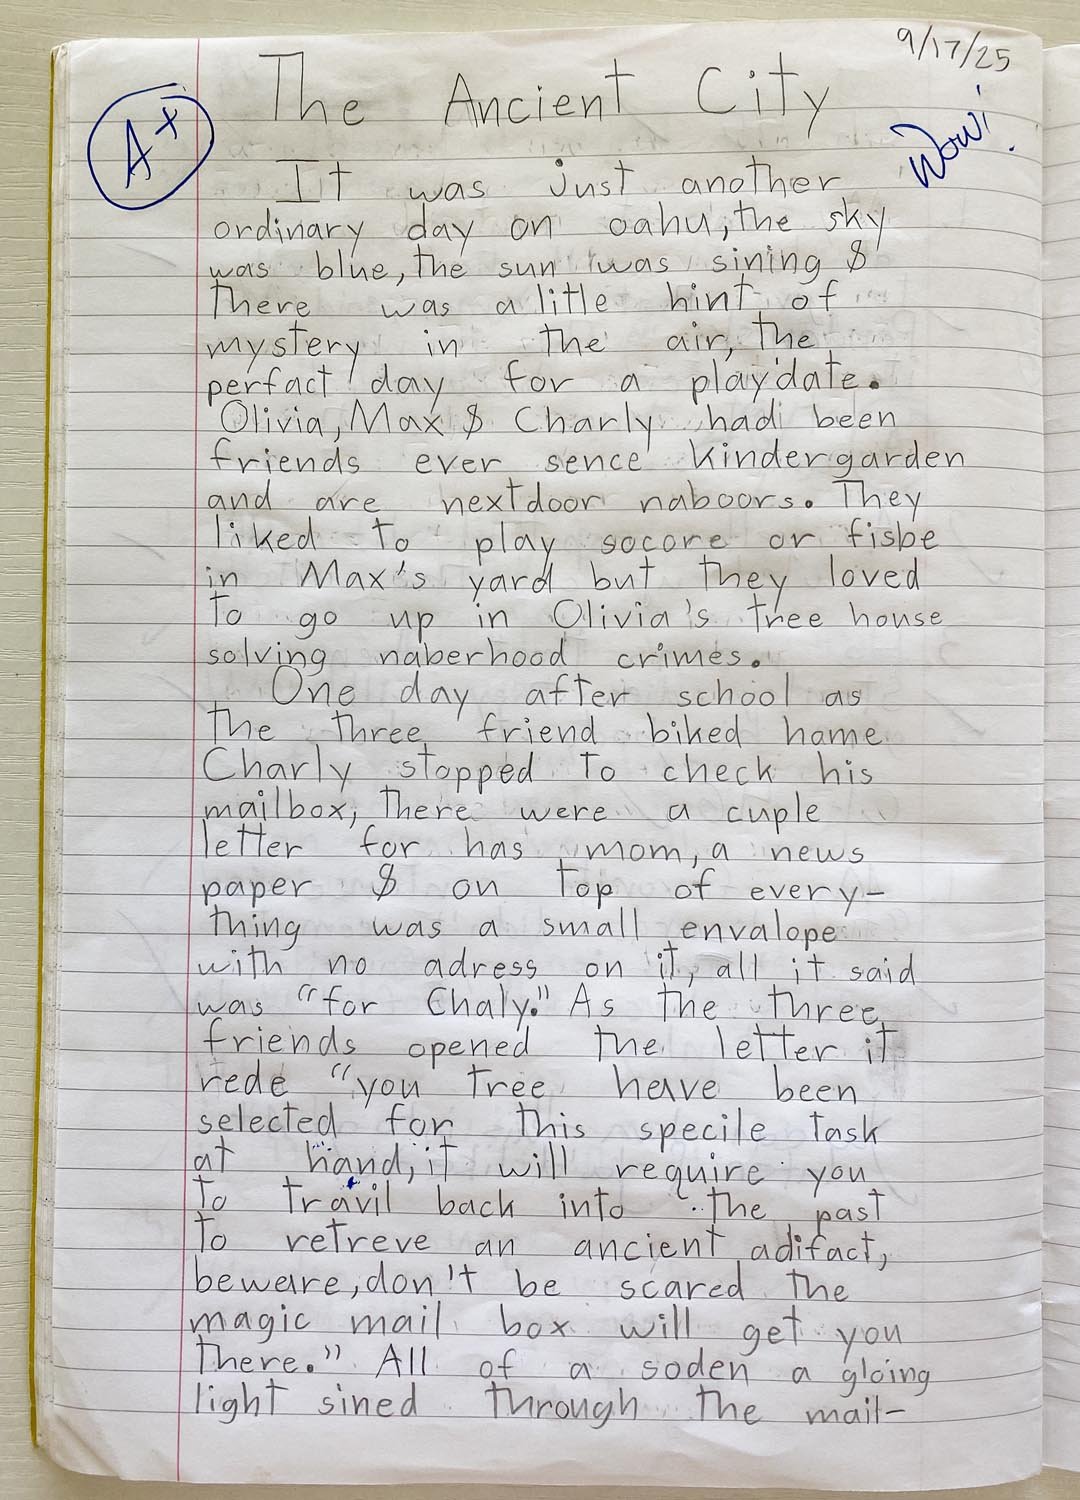 9/17/25
The Ancient City
A+
Wow!
It was just another
ordinary day on oahu, the sky
was blue, the sun was sining &
there was a litle hint of
mystery in the air, the
perfact day for a playdate.
Olivia, Max & Charly had been
friends ever sence kindergarden
and are nextdoor naboors. They
liked to play socore or fisbe
in Max's yard but they loved
to go up in Olivia's tree house
solving naberhood crimes.
One day after school as
the three friend biked home
Charly stopped to check his
mailbox, there were a cuple
letter for has mom, a news
paper & on top of every-
thing was a small envalope
with no adress on it, all it said
was "for Chaly." As the three
friends opened the letter it
rede "you tree heve been
selected for this specile task
at hand, it will require you
to travil back into the past
to retreve an ancient adifact,
beware, don't be scared the
magic mail box will get you
there." All of a soden a gloing
light sined through the mail-